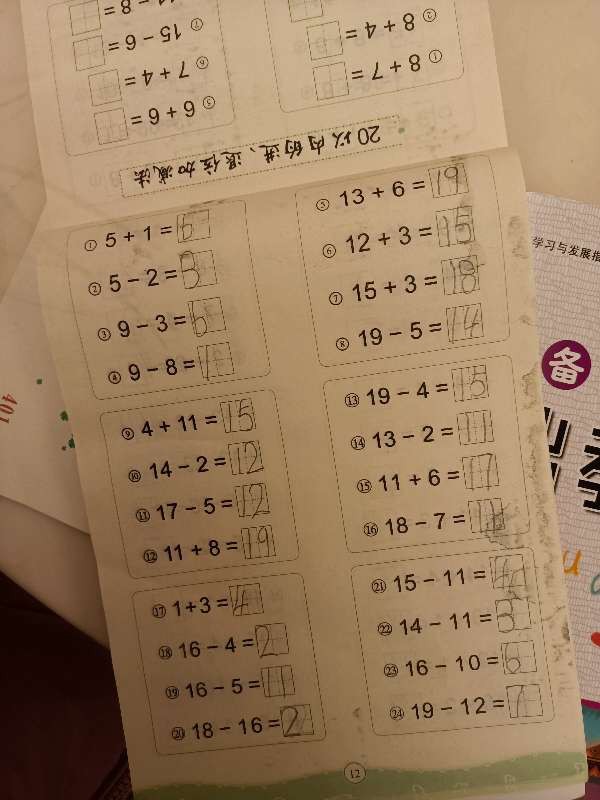 20以内的进、退位加减法
① 8 + 7 =
② 8 + 4 =
⑤ 6 + 6 =
⑥ 7 + 4 =
⑦ 15 − 6 =
− 8 =
① 5 + 1 = 6
② 5 − 2 = 3
③ 9 − 3 = 6
④ 9 − 8 = 1
⑤ 13 + 6 = 19
⑥ 12 + 3 = 15
⑦ 15 + 3 = 18
⑧ 19 − 5 = 14
⑨ 4 + 11 = 15
⑩ 14 − 2 = 12
⑪ 17 − 5 = 12
⑫ 11 + 8 = 19
⑬ 19 − 4 = 15
⑭ 13 − 2 = 11
⑮ 11 + 6 = 17
⑯ 18 − 7 =
⑰ 1+3 = 4
⑱ 16 − 4 = 2
⑲ 16 − 5 = 11
⑳ 18 − 16 = 2
㉑ 15 − 11 = 4
㉒ 14 − 11 = 3
㉓ 16 − 10 = 6
㉔ 19 − 12 = 7
12
401
学习与发展指
备